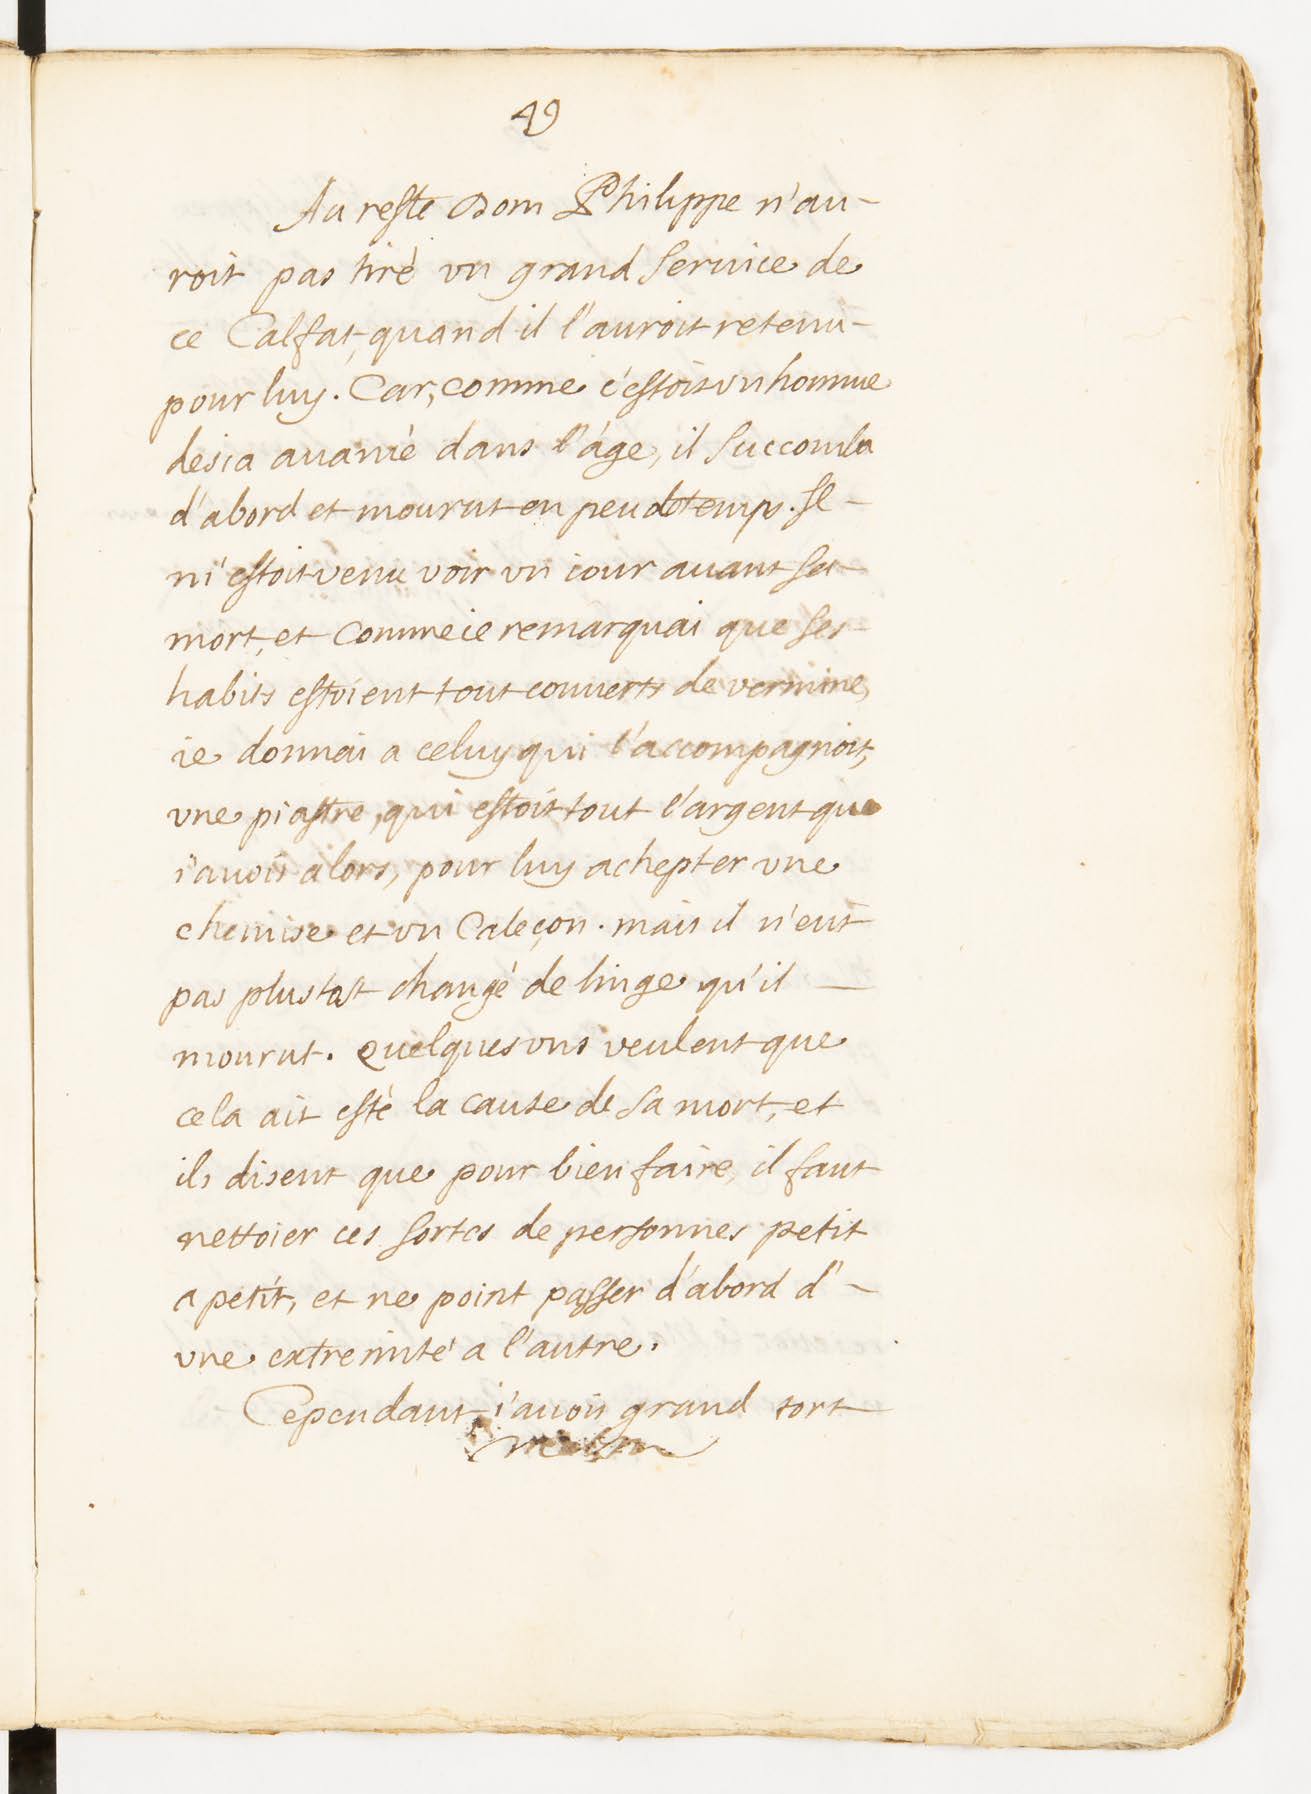 49
Au reste Dom Philippe n'au-
roit pas tiré vn grand seruice de
ce Calfat, quand il l'auroit retenu-
pour luy. Car, comme c'estoit vn homme
desia auancé dans l'áge, il succomba
d'abord et mourut en peu de temps. Il -
m'estoit venu voir vn iour auant sa -
mort, et comme ie remarquai que ses -
habits estoient tout couuerts de vermine,
ie donnai a celuy qui l'accompagnoit,
vne piastre, qui estoit tout l'argent que
i'auois alors, pour luy achepter vne
chemise et vn Caleçon. mais il n'eut
pas plustost changé de linge qu'il —
mourut. Quelques vns veulent que
cela ait esté la cause de sa mort, et
ils disent que pour bien faire, il faut
nettoier ces sortes de personnes petit
a petit, et ne point passer d'abord d'-
vne extremité a l'autre.
Cependant i'auois grand tort